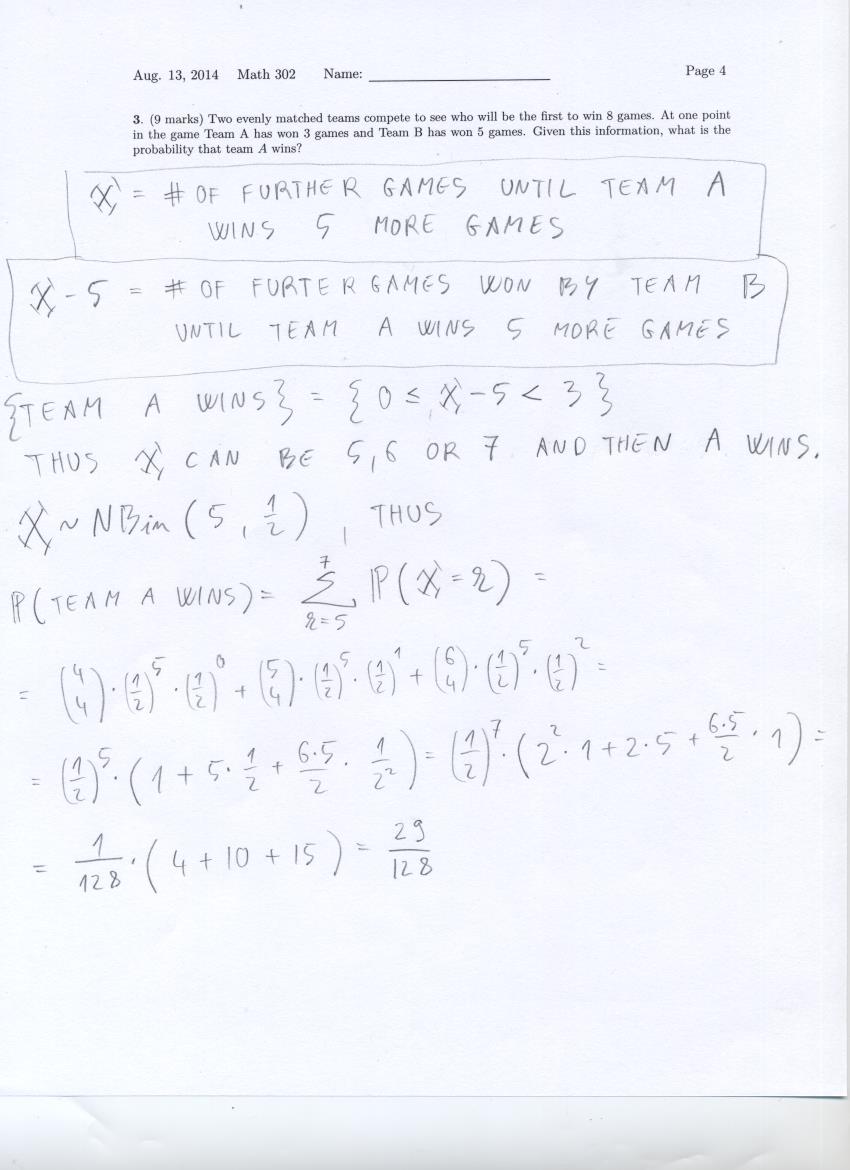 Aug. 13, 2014 Math 302 Name: ____________ Page 4
3. (9 marks) Two evenly matched teams compete to see who will be the first to win 8 games. At one point
in the game Team A has won 3 games and Team B has won 5 games. Given this information, what is the
probability that team A wins?
X = # OF FURTHER GAMES UNTIL TEAM A
WINS 5 MORE GAMES
X - 5 = # OF FURTER GAMES WON BY TEAM B
UNTIL TEAM A WINS 5 MORE GAMES
{TEAM A WINS} = {0 ≤ X - 5 < 3}
THUS X CAN BE 5, 6 OR 7 AND THEN A WINS.
X ~ NBin (5, 1/2), THUS
ℙ(TEAM A WINS) = ∑_{r=5}^{7} ℙ(X = r) =
= (4 4) · (1/2)^5 · (1/2)^0 + (5 4) · (1/2)^5 · (1/2)^1 + (6 4) · (1/2)^5 · (1/2)^2 =
= (1/2)^5 · (1 + 5 · 1/2 + 6·5/2 · 1/2^2) = (1/2)^7 · (2^2 · 1 + 2 · 5 + 6·5/2 · 1) =
= 1/128 · (4 + 10 + 15) = 29/128